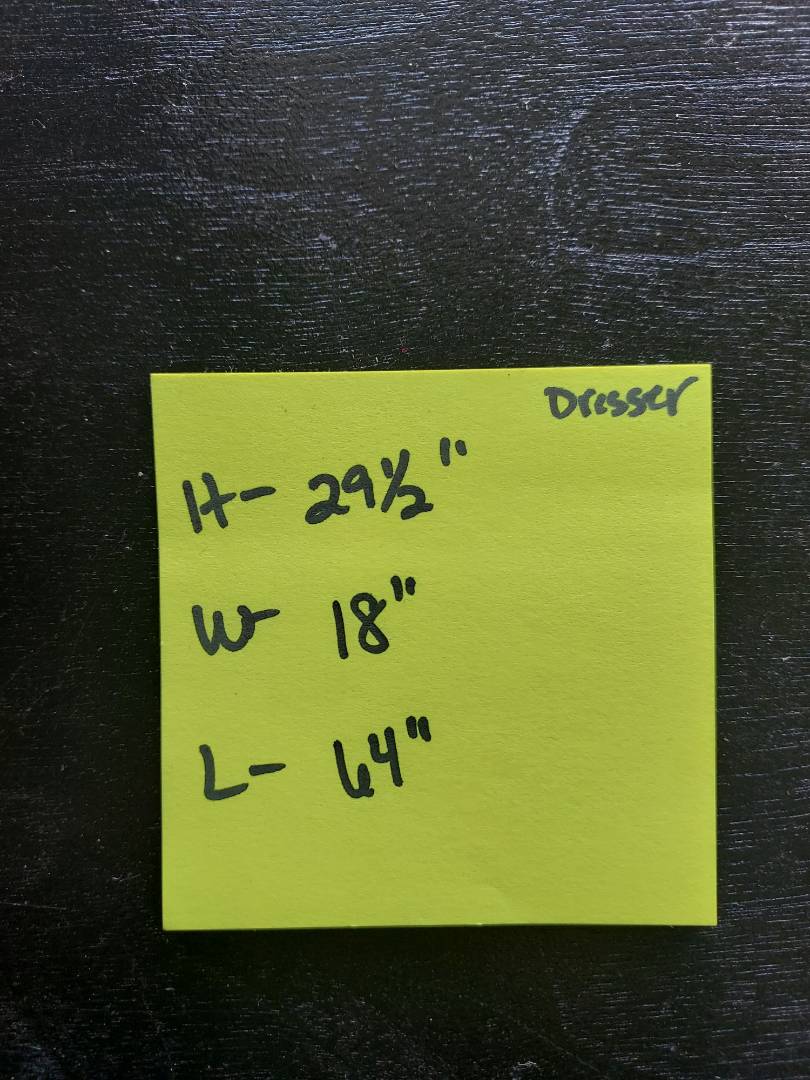 Dresser
H- 29½"
W- 18"
L- 64"